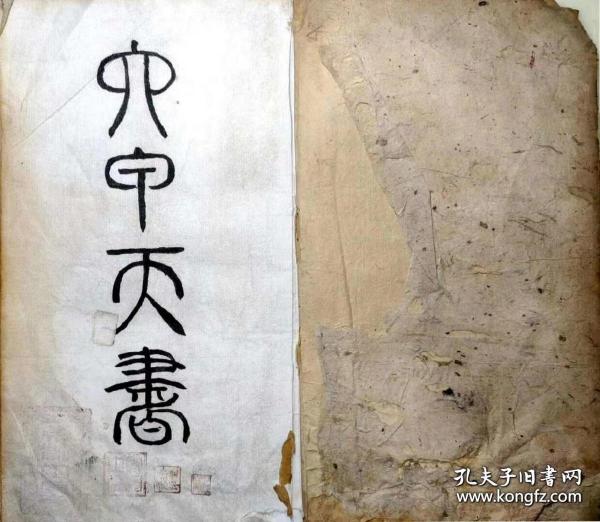 六甲天書
孔夫子旧书网
www.kongfz.com